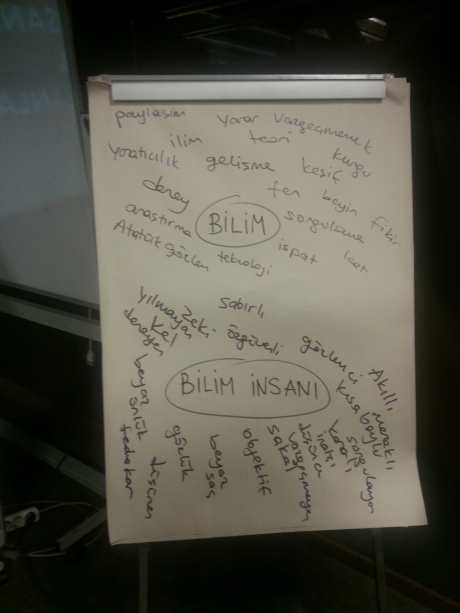 paylaşım yarar vazgeçmemek
ilim teori kurgu
yaratıcılık gelişme keşif
deney fen beyin fikir
araştırma BİLİM sorgulama
Atatürk gözlem teknoloji ispat icat
sabırlı
yılmayan zeki özgüvenli gözlemci
kel
deneyen
Akıllı
meraklı
kısa boylu
BİLİM İNSANI
sorgulayan
kararlı
inatçı
düşünür
vazgeçmeyen
sakal
objektif
beyaz saç
gözlük
düşünen
beyaz önlük
fedakar